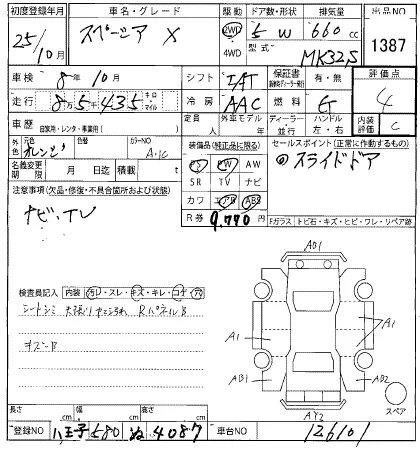 初度登録年月 車名・グレード 駆動 ドア数・形状 排気量 出品NO
25/10月 スペーシア X 2WD 4WD 5 W 660 cc 1387
型式 MK32S
車検 8年10月 シフト IAT 保証書 有・無 評価点
走行 8万5千435 キロ マイル 冷房 AAC 燃料 G 4
車歴 自家用・レンタ・事業用( ) 定員 人 外車モデル 年 ディーラー 並行 ハンドル 左・右 内装評価 C
外色 元色 オレンジ 色替 カラーNO
装備品(純正品に限る) セールスポイント(正常に作動するもの)
名義変更期限 月 日迄 積載 t
PS PW AW スライドドア
SR TV ナビ
注意事項(欠品・修復・不具合箇所および状態) カワ エアB ABS
ナビ、TV R券 9,770円 Fガラス トビ石・キズ・ヒビ・ワレ・リペア跡
検査員記入 内装 汚レ・スレ・キズ・キレ・コゲ・穴
シートシミ
キズ
AU1
A1 A1
AB1 AB2
AY2
スペア
長さ cm 幅 cm 高さ cm
登録NO 八王子 580 ぬ 4087 車台NO 126101